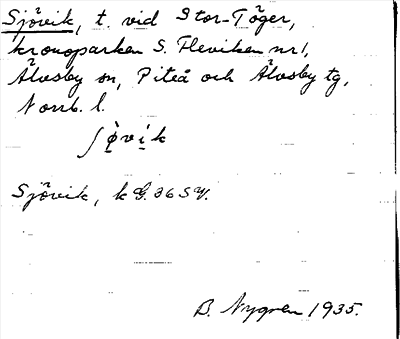 Sjövik, t. vid Stor-Töger,
kronoparken S. Fleviken nr 1,
Älvsby sn, Piteå och Älvsby tg,
Norrb. l.
ʃø̀vík
Sjövik, k G. 36 SV.
B. Nygren 1935.